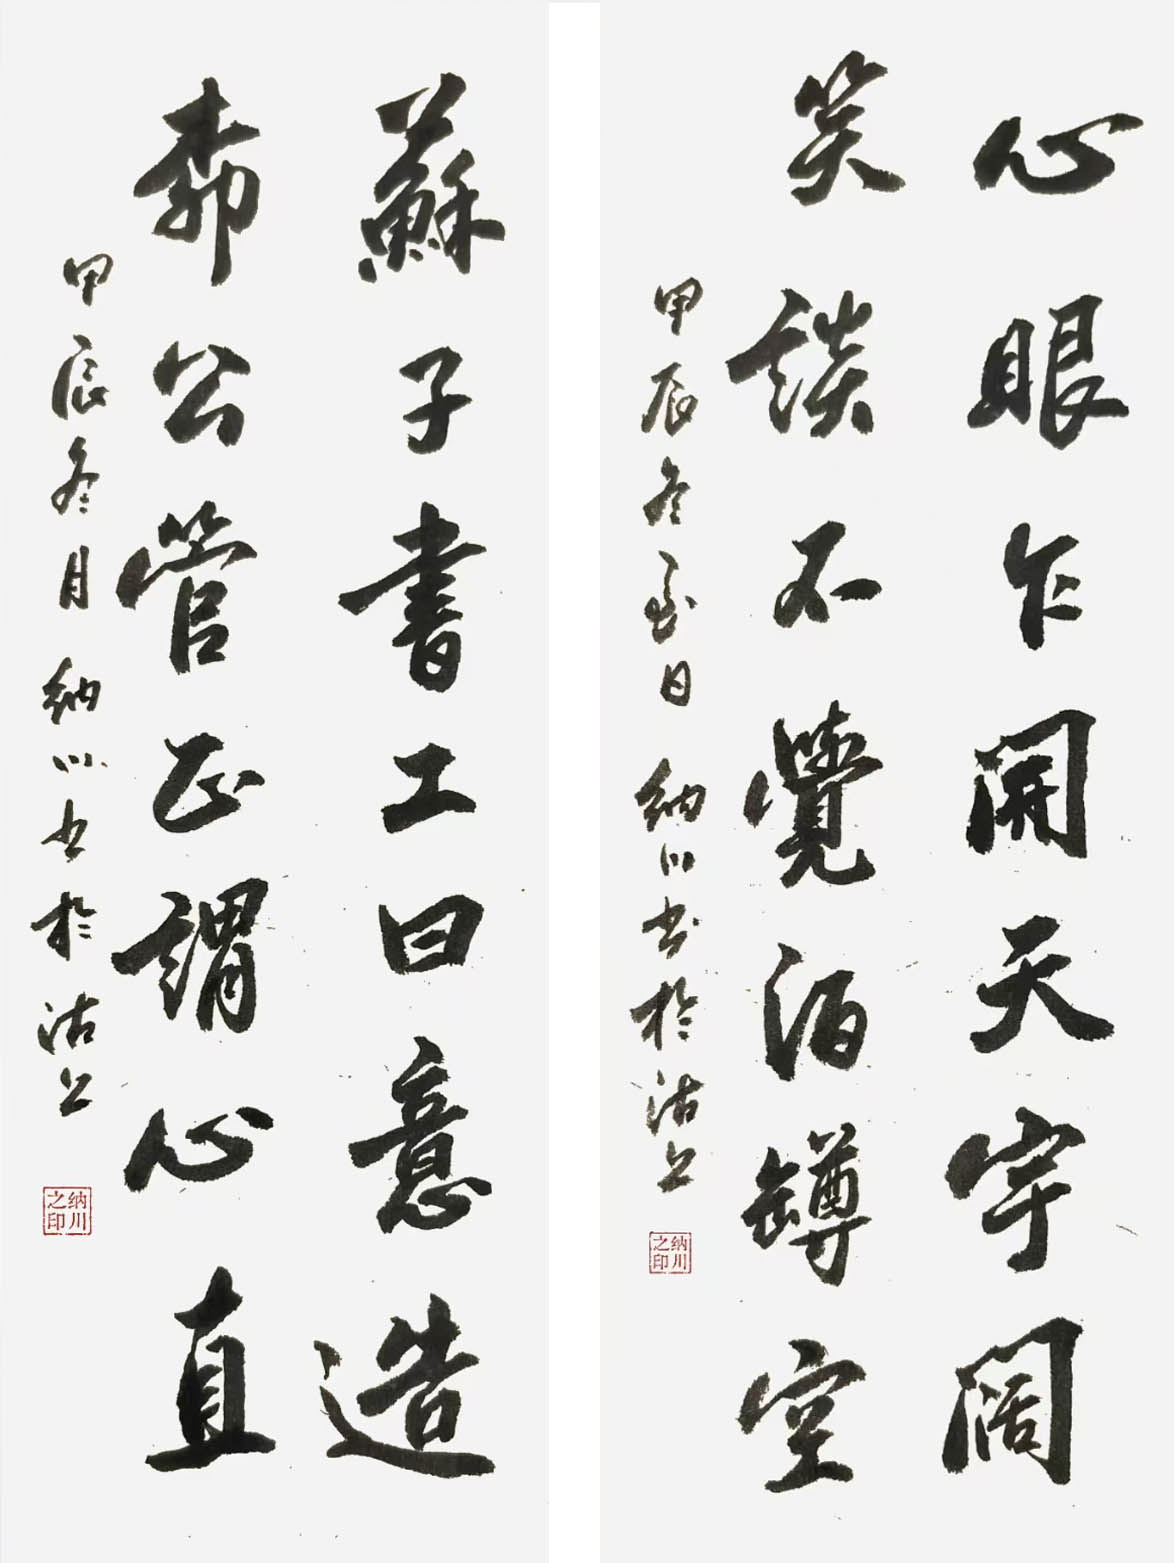 心眼乍開天宇闊
笑談不覺酒罇空
甲辰冬至日 納川書於沽上
纳川之印
蘇子書工曰意造
柳公管正謂心直
甲辰冬月 納川書於沽上
纳川之印